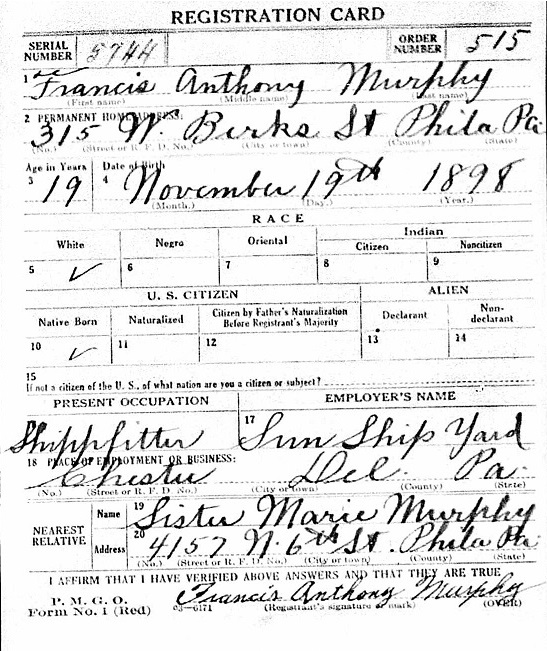 REGISTRATION CARD
SERIAL NUMBER 5744 ORDER NUMBER 515
1 Francis Anthony Murphy
(First name) (Middle name) (Last name)
2 PERMANENT HOME ADDRESS:
315 W. Berks St Phila Pa
(No.) (Street or R. F. D. No.) (City or town) (County) (State)
Age in Years Date of Birth
3 19 4 November 19th 1898
(Month.) (Day.) (Year.)
RACE
White Negro Oriental Indian
Citizen Noncitizen
5 ✓ 6 7 8 9
U. S. CITIZEN ALIEN
Native Born Naturalized Citizen by Father's Naturalization Before Registrant's Majority Declarant Non-declarant
10 ✓ 11 12 13 14
15
If not a citizen of the U. S., of what nation are you a citizen or subject?
PRESENT OCCUPATION EMPLOYER'S NAME
Shippfitter 17 Sun Ship Yard
18 PLACE OF EMPLOYMENT OR BUSINESS:
Chester Del. Pa.
(No.) (Street or R. F. D. No.) (City or town) (County) (State)
NEAREST RELATIVE
Name 19 Sister Marie Murphy
Address 20 4157 N. 6th St. Phila Pa
(No.) (Street or R. F. D. No.) (City or town) (County) (State)
I AFFIRM THAT I HAVE VERIFIED ABOVE ANSWERS AND THAT THEY ARE TRUE
P. M. G. O.
Form No. 1 (Red) 03—6171 Francis Anthony Murphy
(Registrant's signature or mark) (OVER)